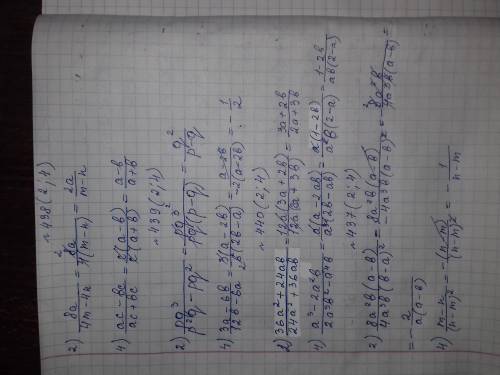 №438(2;4)
2) 8a/(4m-4n) = 8a/(4(m-n)) = 2a/(m-n)
4) (ac-bc)/(ac+bc) = c(a-b)/(c(a+b)) = (a-b)/(a+b)
№439(2;4)
2) pq³/(p²q-pq²) = pq³/(pq(p-q)) = q²/(p-q)
4) (3a-6b)/(12b-6a) = 3(a-2b)/(6(2b-a)) = (a-2b)/(-2(a-2b)) = -1/2
№440(2;4)
2) (36a²+24ab)/(24a²+36ab) = 12a(3a+2b)/(12a(2a+3b)) = (3a+2b)/(2a+3b)
4) (a³-2a²b)/(2a³b²-a⁴b) = a(1-2b)/(a²b(2-a)) = (1-2b)/(ab(2-a))
№437(2;4)
2) 8a²b(a-b)/(4a³b(b-a)²) = 8a²b(a-b)/(-4a³b(a-b)²) = -8a²b/(4a³b(a-b)) =
= -2/(a(a-b))
4) (m-n)/(n-m)² = -(n-m)/(n-m)² = -1/(n-m)